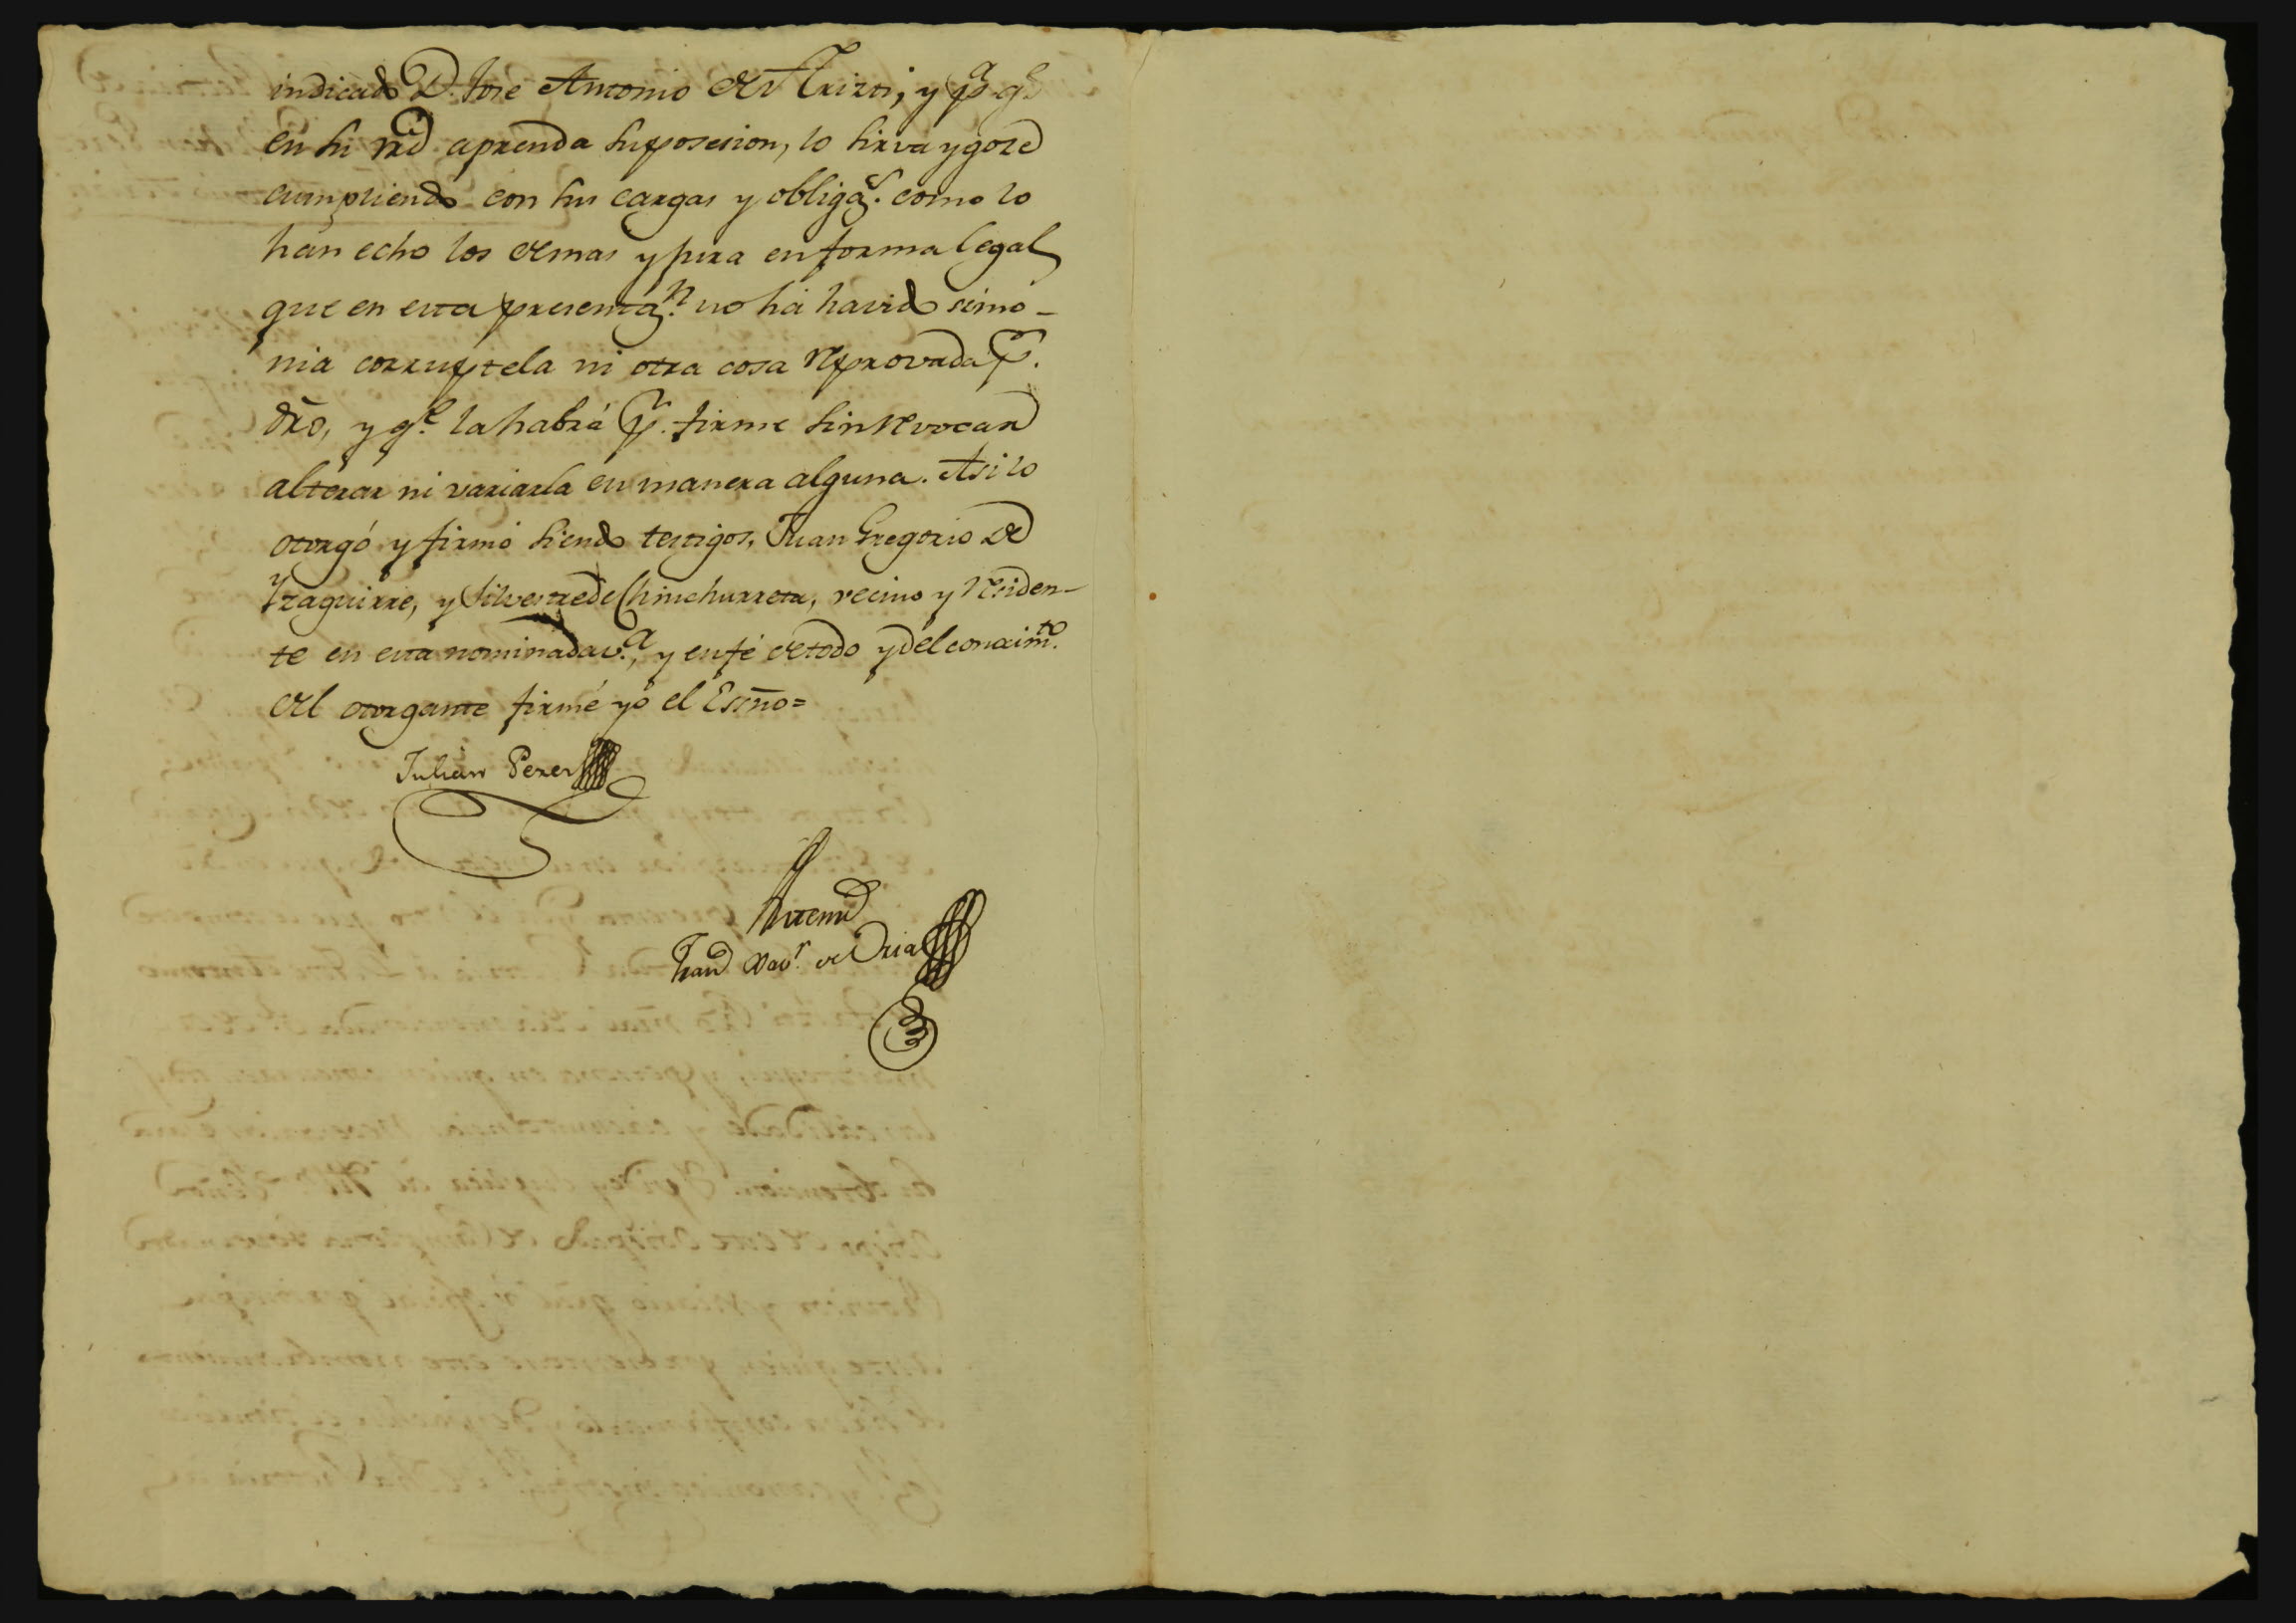 indicado D. Jose Antonio de Arizti, y pª. qᵉ
en su vrd aprenda su posesion, lo sirva y goze
cumpliendo con sus cargas y obligaˢ. como lo
han echo los demas y jura en forma legal
que en esta presentaⁿ. no há havido simo-
nia corruptela ni otra cosa reprovada pʳ.
dr̃o, y qᵉ. la habrá pʳ. firme sin revocar
alterar ni variarla en manera alguna. Asi lo
otorgó y firmó siendo testigos, Juan Gregorio de
Yzaguirre, y Silvestre de Chinchurreta, vecino y residen-
te en esta nominada v.ª, y en fé de todo y del conocimᵗᵒ.
del otorgante firmé yo el Essño=
Julian Perez
Antemi
Xavʳ. de Oria